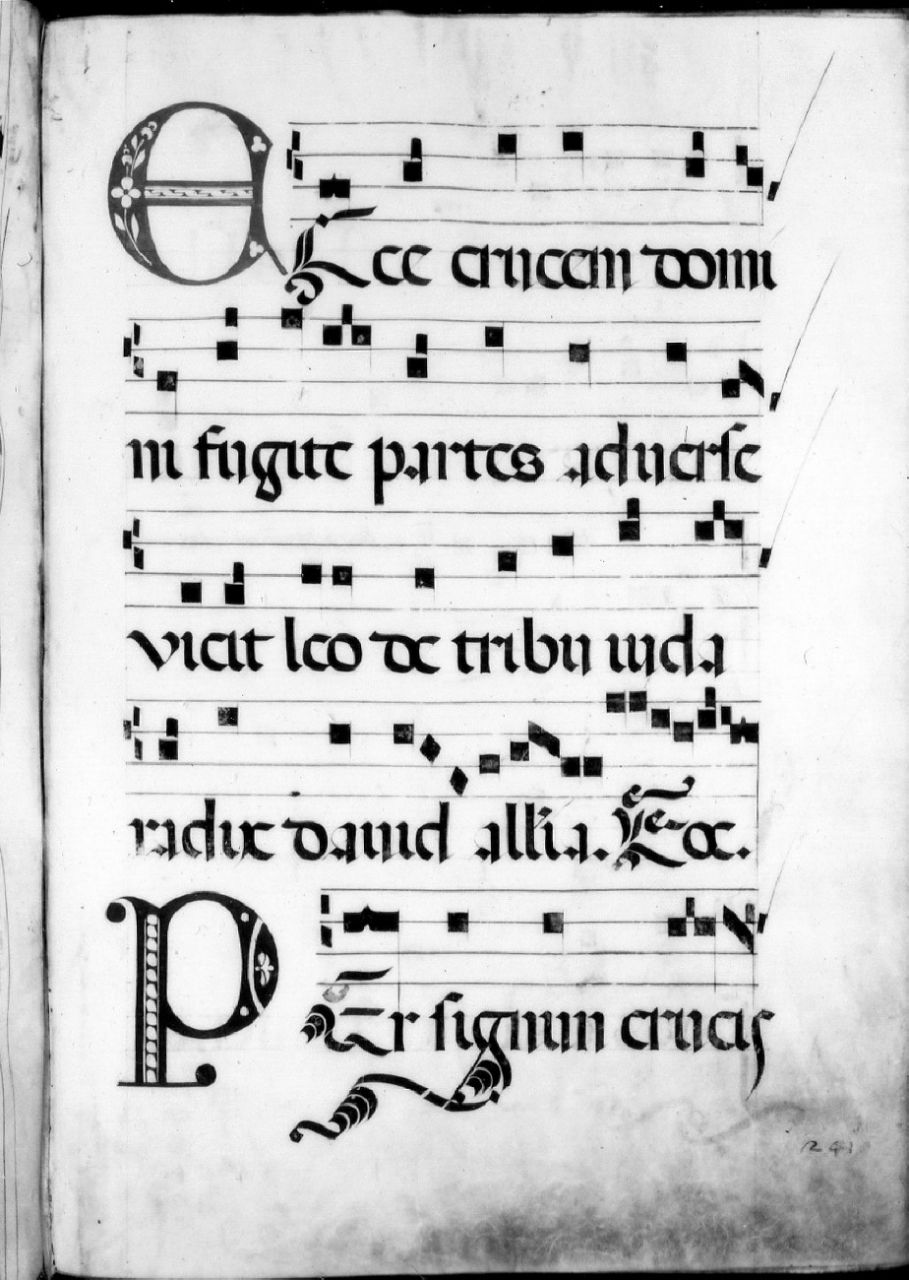 EEcce crucem domi
ni fugite partes aduerse
vicit leo de tribu iuda
radix dauid all'ia. Euoe.
PEr signum crucis
241